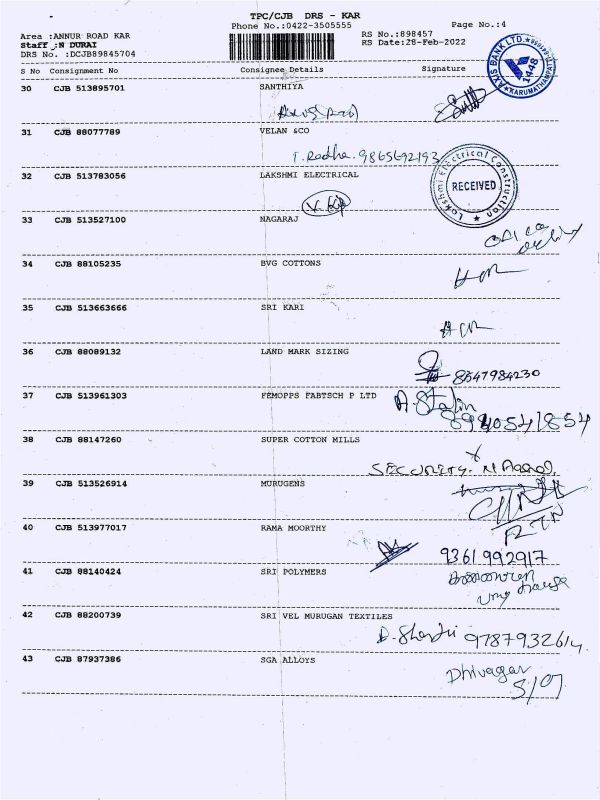 TPC/CJB DRS - KAR
Phone No.:0422-3505555 Page No.:4
Area :ANNUR ROAD KAR RS No.:898457
Staff :N DURAI RS Date:28-Feb-2022
DRS No. :DCJB89845704
AXIS BANK LTD. 1448 KARUMATHAMPATTI
S No Consignment No Consignee Details Signature
30 CJB 513895701 SANTHIYA
31 CJB 88077789 VELAN &CO
T. Radha. 9865692193
32 CJB 513783056 LAKSHMI ELECTRICAL
Lakshmi Electrical Construction
RECEIVED
33 CJB 513527100 NAGARAJ
34 CJB 88105235 BVG COTTONS
35 CJB 513663666 SRI KARI
36 CJB 88089132 LAND MARK SIZING
8547984230
37 CJB 513961303 FEMOPPS FABTSCH P LTD
A. Stalin
8940541854
38 CJB 88147260 SUPER COTTON MILLS
SECURITY.
39 CJB 513526914 MURUGENS
40 CJB 513977017 RAMA MOORTHY
9361992917
41 CJB 88140424 SRI POLYMERS
42 CJB 88200739 SRI VEL MURUGAN TEXTILES
9787932614
43 CJB 87937386 SGA ALLOYS
Dhivagar